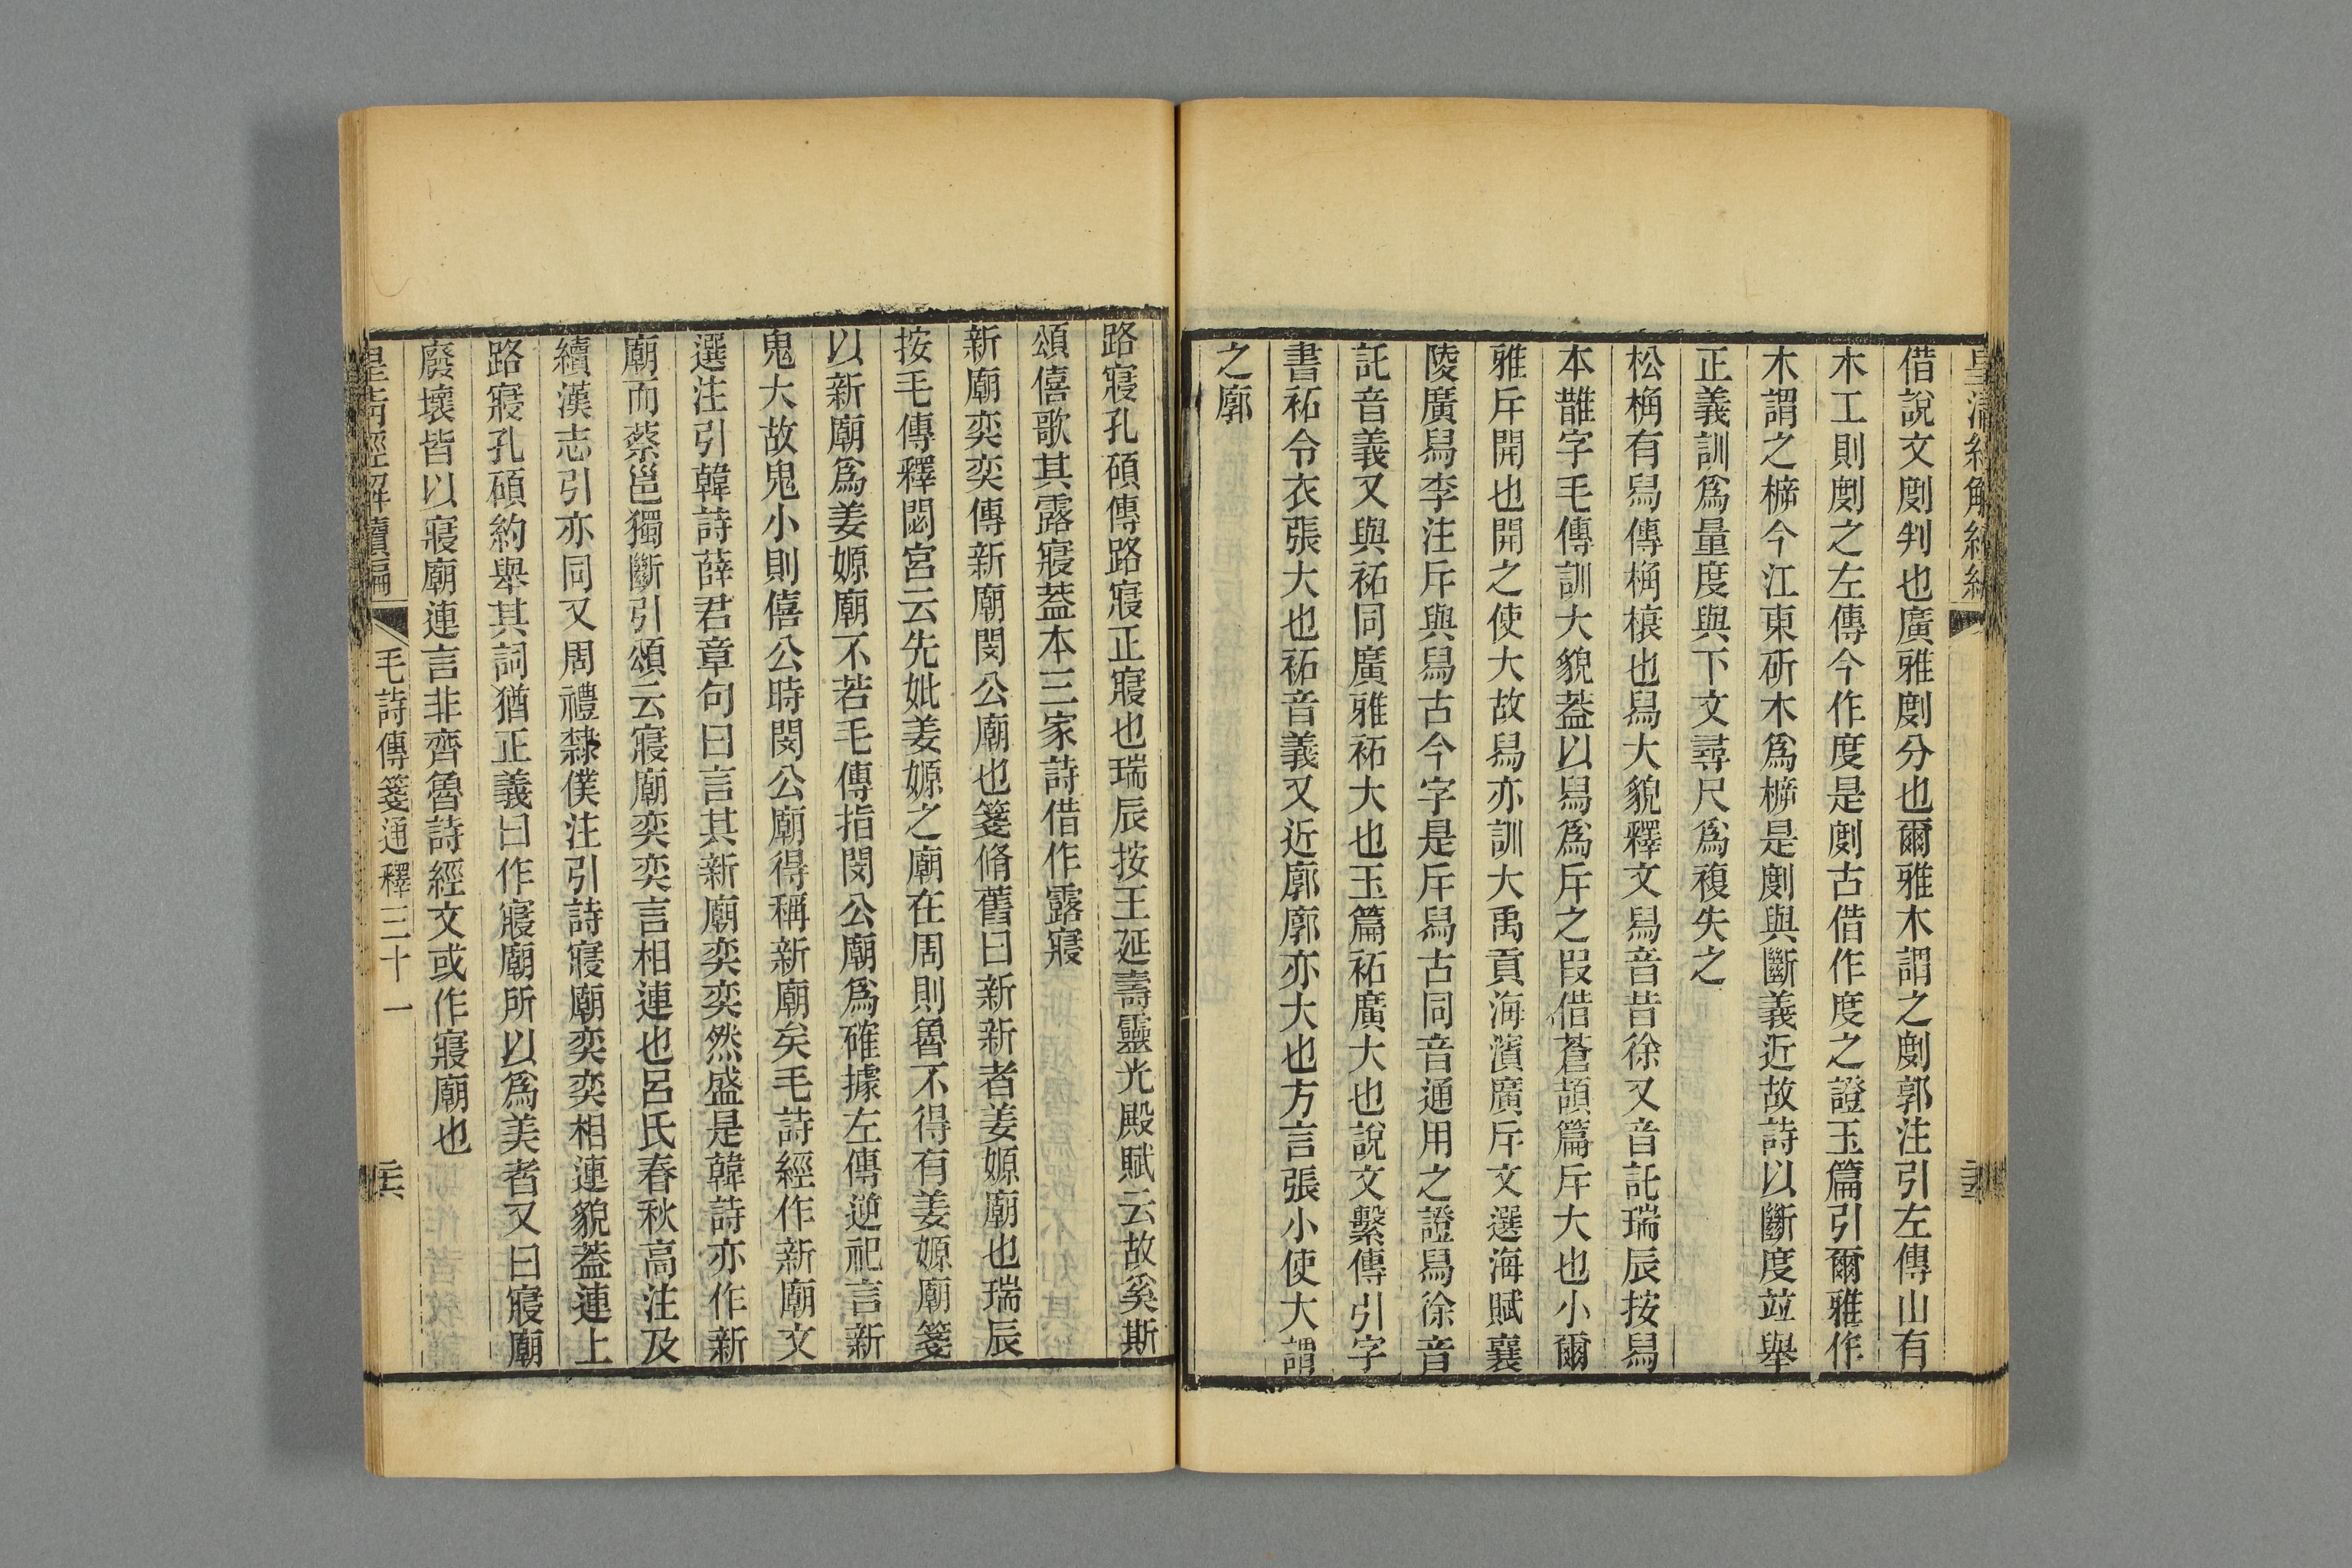 借說文剫判也廣雅剫分也爾雅木謂之剫郭注引左傳山有
木工則剫之左傳今作度是剫古借作度之證玉篇引爾雅作
木謂之㯙今江東斫木爲㯙是剫與斷義近故詩以斷度竝舉
正義訓爲量度與下文尋尺爲複失之
松桷有舄傳桷榱也舄大貌釋文舄音昔徐又音託瑞辰按舄
本䧿字毛傳訓大貌葢以舄爲斥之叚借蒼頡篇斥大也小爾
雅斥開也開之使大故舄亦訓大禹貢海濱廣斥文選海賦襄
陵廣舄李注斥與舄古今字是斥舄古同音通用之證舄徐音
託音義又與祏同廣雅祏大也玉篇祏廣大也說文繫傳引字
書祏令衣張大也祏音義又近廓廓亦大也方言張小使大謂
之廓
路寢孔碩傳路寢正寢也瑞辰按王延壽靈光殿賦云故奚斯
頌僖歌其露寢葢本三家詩借作露寢
新廟奕奕傳新廟閔公廟也箋脩舊曰新新者姜嫄廟也瑞辰
按毛傳釋閟宮云先妣姜嫄之廟在周則魯不得有姜嫄廟箋
以新廟爲姜嫄廟不若毛傳指閔公廟爲確據左傳逆祀言新
鬼大故鬼小則僖公時閔公廟得稱新廟矣毛詩經作新廟文
選注引韓詩薛君章句曰言其新廟奕奕然盛是韓詩亦作新
廟而蔡邕獨斷引頌云寢廟奕奕言相連也呂氏春秋高注及
續漢志引亦同又周禮隸僕注引詩寢廟奕奕相連貌葢連上
路寢孔碩約舉其詞猶正義曰作寢廟所以爲美者又曰寢廟
廢壞皆以寢廟連言非齊魯詩經文或作寢廟也
皇淸經解續編 毛詩傳箋通釋三十一